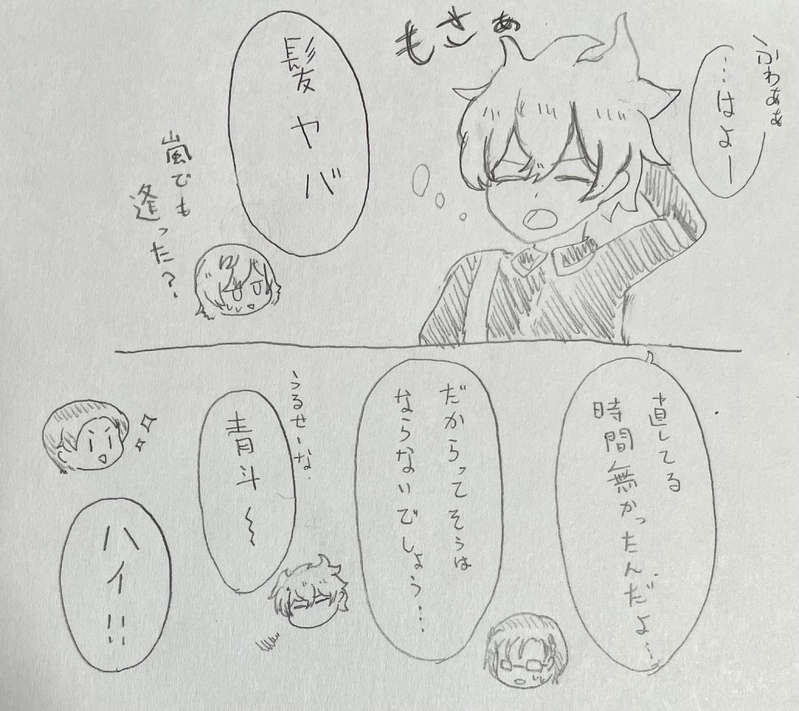 ふわぁぁー
…はよー
もさぁ
髪ヤバ
嵐でも
逢った?
直してる
時間無かったんだよ…
だからってそうは
ならないでしょう…
うるせーな
青斗~
ハイ!!